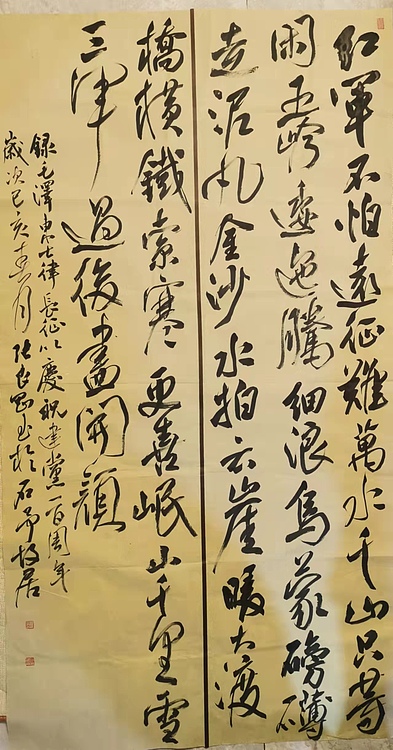 红軍不怕遠征難萬水千山只等
闲五嶺逶迤騰细浪烏蒙磅礴
走泥丸金沙水拍云崖暖大渡
橋横鐵索寒更喜岷山千里雪
三軍過後盡開顔
録毛澤東七律長征以慶祝建黨一百周年
歲次己亥月张书於石居